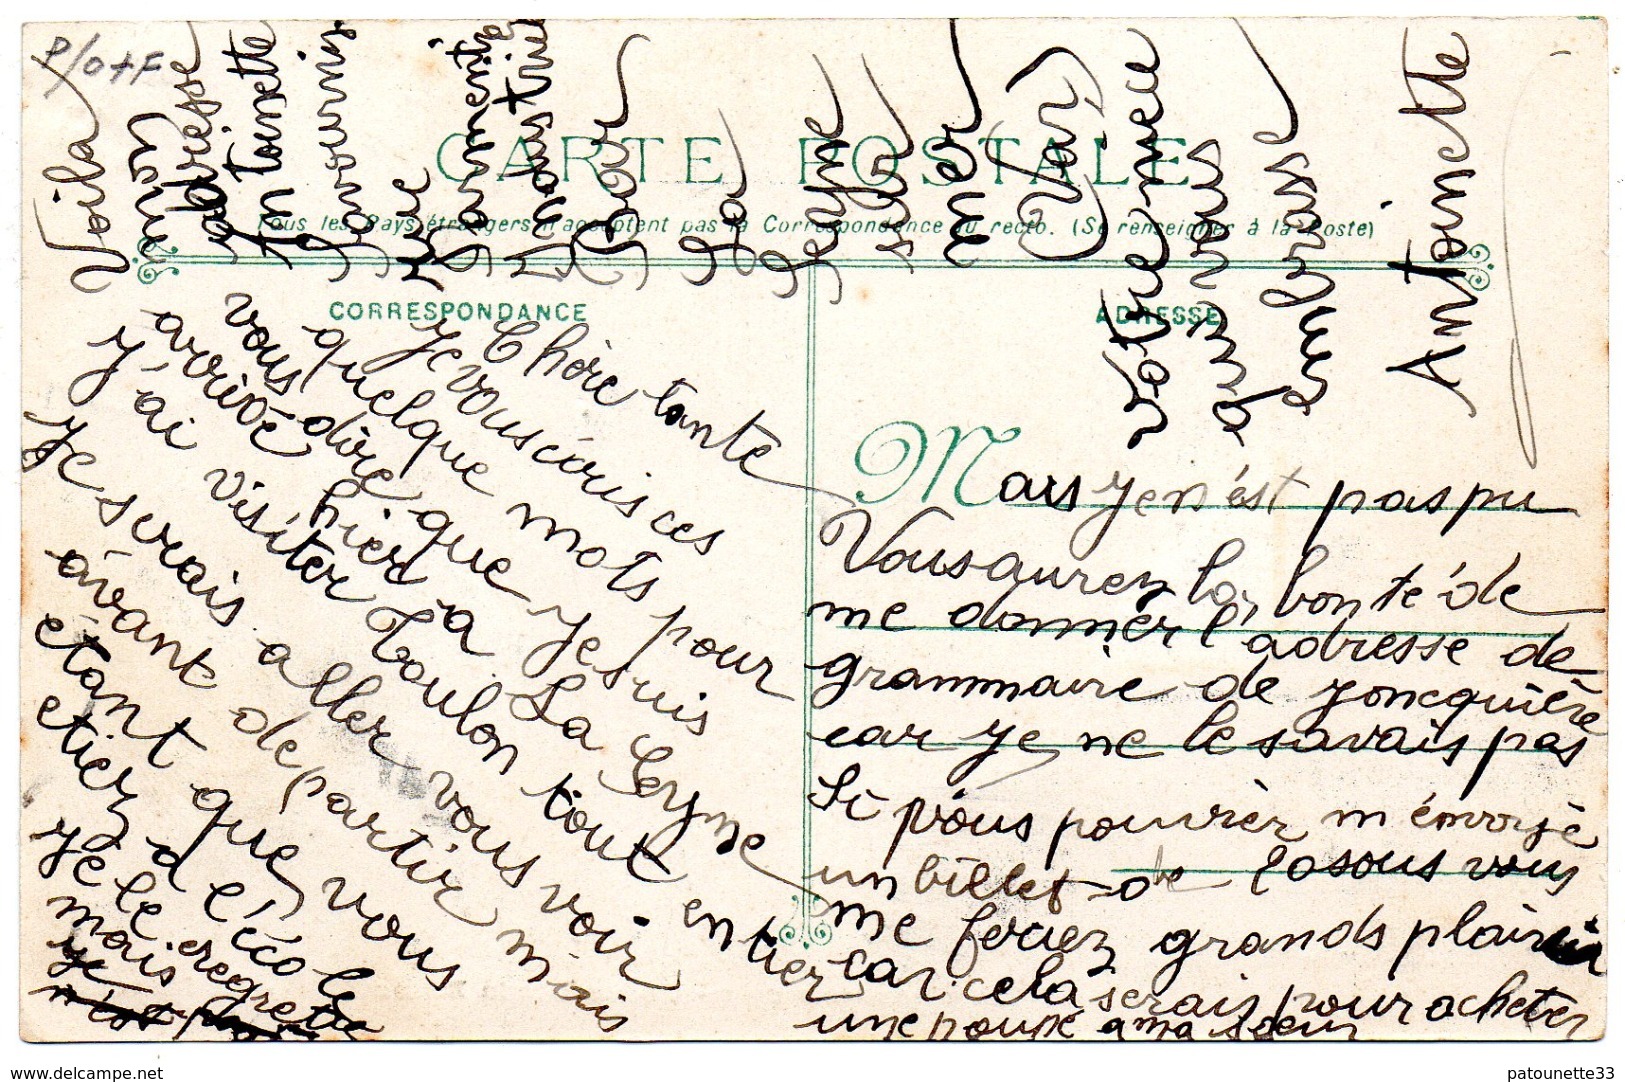 P/O+F
CARTE POSTALE
Tous les Pays étrangers n'acceptent pas la Correspondance au recto. (Se renseigner à la Poste)
CORRESPONDANCE
ADRESSE
Chère tante
Je vous écris ces
quelque mots pour
vous dire que je suis
arrivé hier a La Seyne
j'ai visiter Toulon tout entier
Je serais aller vous voir
avant de partir mais
etant que vous
etiez a l'école
je le regrette
mais
je
n'est pas
Mais je n'est pas pu
Vous aurez la bonté de
me donner l'adresse de
grammaire de Joncquière
car je ne le savais pas
Si vous pouvrèr m'émvoyè
un billet de 10 sous vous
me feriez grands plaisir
car cela serais pour acheter
une poupé a ma soeur
Voila
mon
adresse
Antoinette
rue
Laurent
Tour
La
Seyne
sur
mer
(Var)
votre nièce
qui vous
embrasse
Antoinette
www.delcampe.net
patounette33